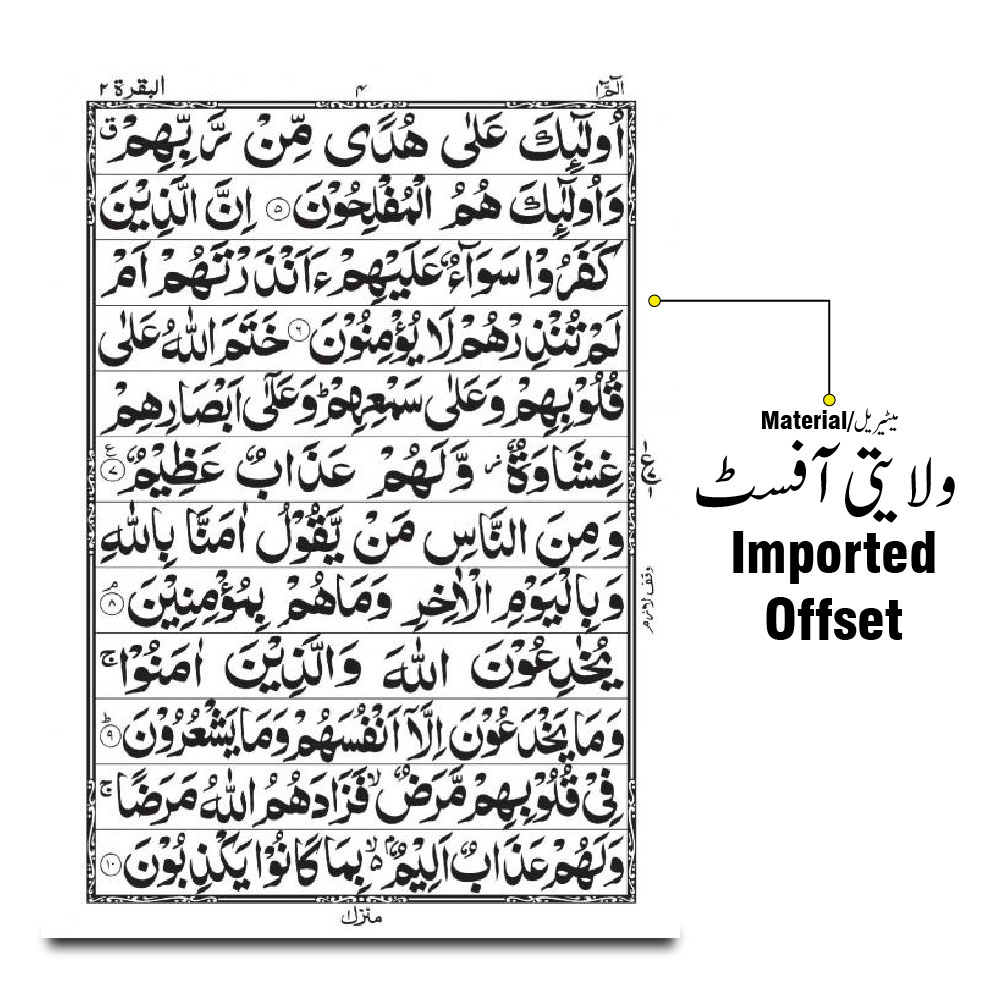 الٓمّٓ ١ ۴ البقرة ٢
اُولٰٓئِكَ عَلٰى هُدًى مِّنْ رَّبِّهِمْ ق
وَاُولٰٓئِكَ هُمُ الْمُفْلِحُوْنَ ٥ اِنَّ الَّذِيْنَ
كَفَرُوْا سَوَآءٌ عَلَيْهِمْ ءَاَنْذَرْتَهُمْ اَمْ
لَمْ تُنْذِرْهُمْ لَا يُؤْمِنُوْنَ ٦ خَتَمَ اللّٰهُ عَلٰى
قُلُوْبِهِمْ وَعَلٰى سَمْعِهِمْ ط وَعَلٰٓى اَبْصَارِهِمْ
غِشَاوَةٌ ز وَّلَهُمْ عَذَابٌ عَظِيْمٌ ٧ ع
وَمِنَ النَّاسِ مَنْ يَّقُوْلُ اٰمَنَّا بِاللّٰهِ
وَبِالْيَوْمِ الْاٰخِرِ وَمَا هُمْ بِمُؤْمِنِيْنَ ٨ م
وقف لازم
يُخٰدِعُوْنَ اللّٰهَ وَالَّذِيْنَ اٰمَنُوْا ج
وَمَا يَخْدَعُوْنَ اِلَّآ اَنْفُسَهُمْ وَمَا يَشْعُرُوْنَ ٩ ط
فِىْ قُلُوْبِهِمْ مَّرَضٌ لا فَزَادَهُمُ اللّٰهُ مَرَضًا ج
وَلَهُمْ عَذَابٌ اَلِيْمٌۢ ٥ لا بِمَا كَانُوْا يَكْذِبُوْنَ ١٠
منزل
Material/میٹیریل
ولایتی آفسٹ
Imported
Offset